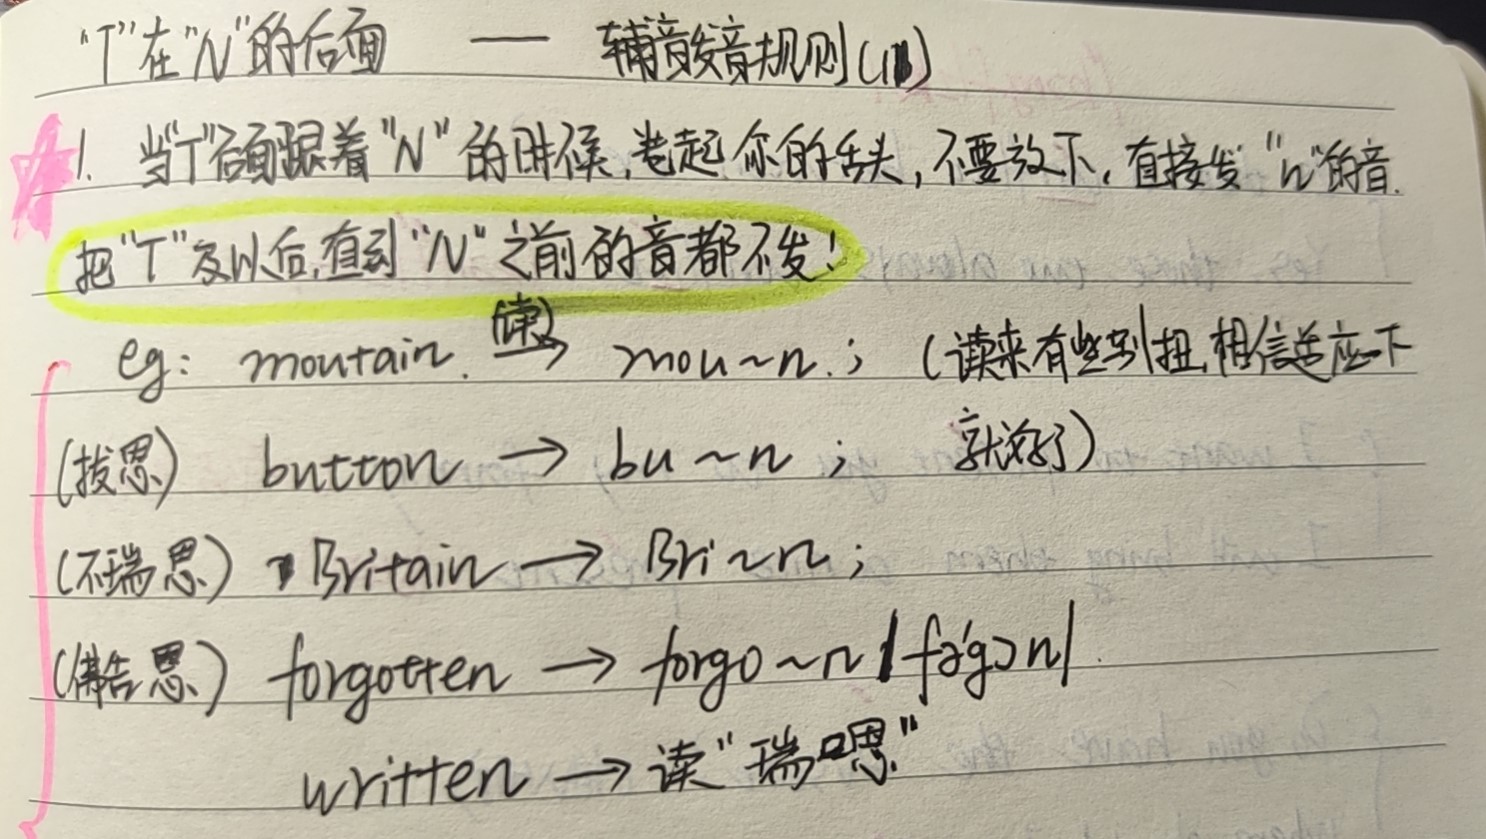 "T"在"N"的后面 — 辅音发音规则(1)
1. 当"T"后面跟着"N"的时候,卷起你的舌头,不要放下,直接发"n"的音.
把"T"及以后,直到"N"之前的音都不发!
eg: moutain. (读)→ mou~n.; (读来有些别扭,相信适应一下
(拔恩) button → bu~n ; 就好了)
(不瑞恩) Britain → Bri~n;
(佛告恩) forgotten → forgo~n /fə'gɔn/
written → 读"瑞嗯"